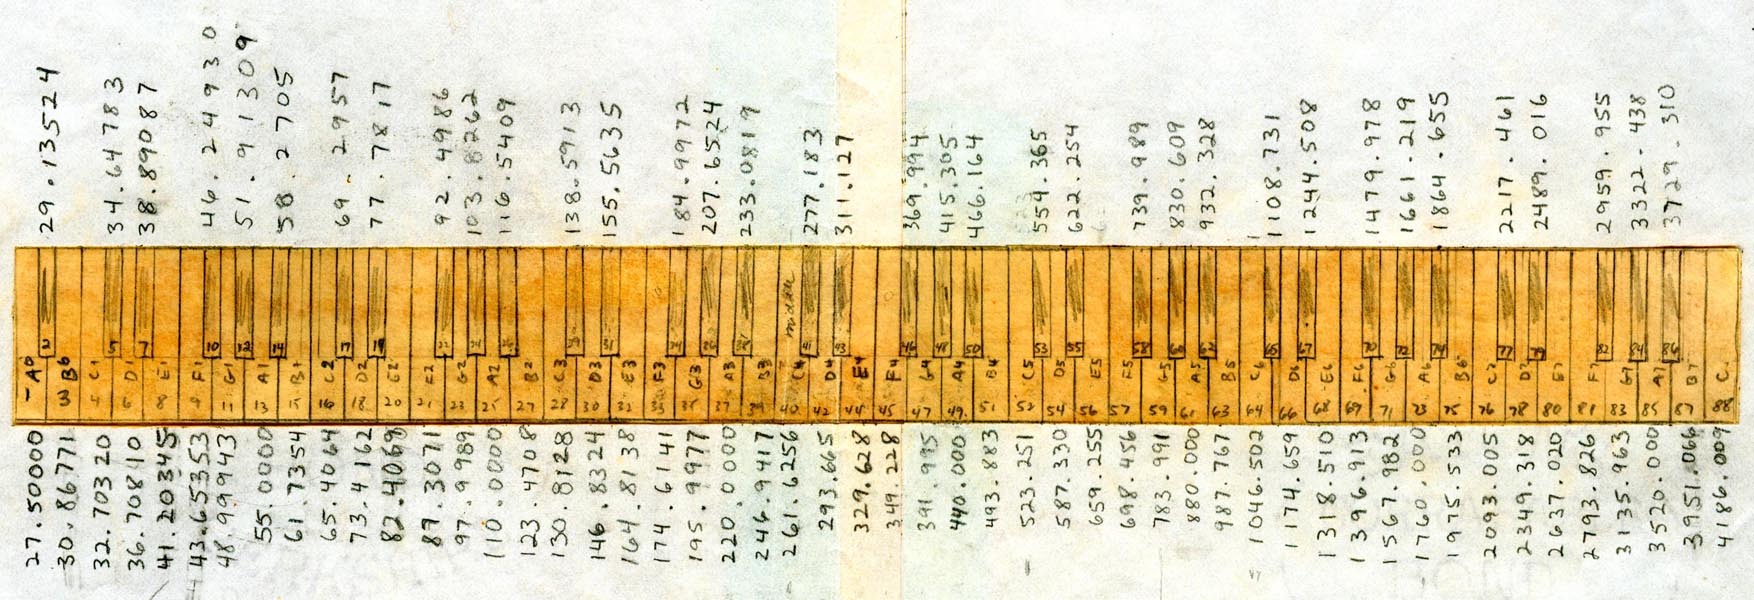 29.13524
34.64783
38.89087
46.24930
51.91309
58.2705
69.2957
77.7817
92.4986
103.8262
116.5409
138.5913
155.5635
184.9972
207.6524
233.0819
277.183
311.127
369.994
415.305
466.164
554.365
622.254
739.989
830.609
932.328
1108.731
1244.508
1479.978
1661.219
1864.655
2217.461
2489.016
2959.955
3322.438
3729.310
2
5
7
10
12
14
17
19
22
24
26
29
31
34
36
38
middle
41
43
46
48
50
53
55
58
60
62
65
67
70
72
74
77
79
82
84
86
1 A0
3 B0
4 C1
6 D1
8 E1
9 F1
11 G1
13 A1
15 B1
16 C2
18 D2
20 E2
21 F2
23 G2
25 A2
27 B2
28 C3
30 D3
32 E3
33 F3
35 G3
37 A3
39 B3
40 C4
42 D4
44 E4
45 F4
47 G4
49 A4
51 B4
52 C5
54 D5
56 E5
57 F5
59 G5
61 A5
63 B5
64 C6
66 D6
68 E6
69 F6
71 G6
73 A6
75 B6
76 C7
78 D7
80 E7
81 F7
83 G7
85 A7
87 B7
88 C
27.50000
30.86771
32.70320
36.70810
41.20345
43.65353
48.99943
55.0000
61.7354
65.4064
73.4162
82.4069
87.3071
97.9989
110.000
123.4708
130.8128
146.8324
164.8138
174.6141
195.9977
220.0000
246.9417
261.6256
293.665
329.628
349.228
391.995
440.000
493.883
523.251
587.330
659.255
698.456
783.991
880.000
987.767
1046.502
1174.659
1318.510
1396.913
1567.982
1760.000
1975.533
2093.005
2349.318
2637.020
2793.826
3135.963
3520.000
3951.066
4186.009